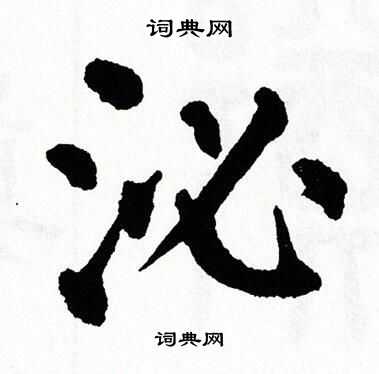 词典网
泌
词典网